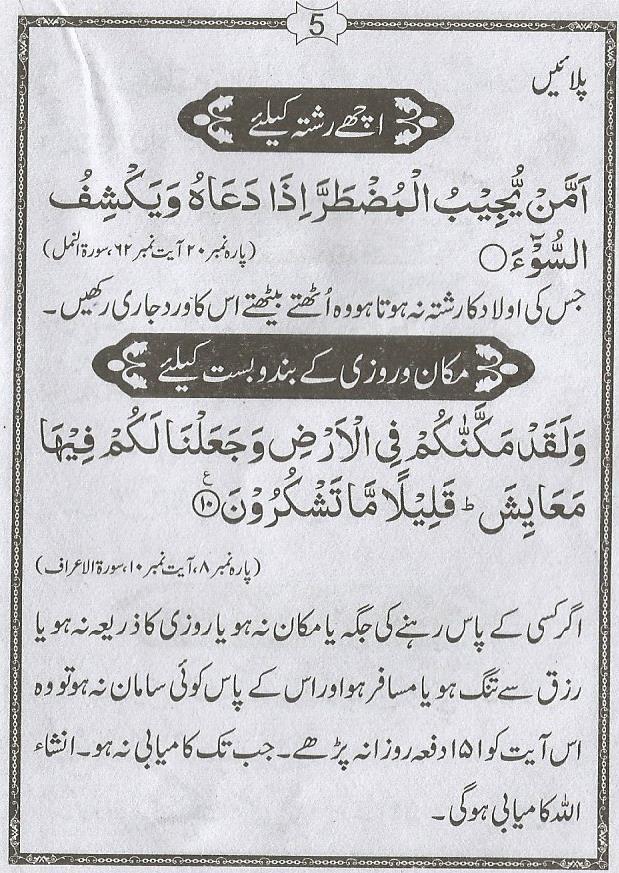 5
پلائیں
اچھے رشتہ کیلئے
اَمَّنْ یُّجِیْبُ الْمُضْطَرَّ اِذَا دَعَاہُ وَیَکْشِفُ
السُّوْٓءَ○
(پارہ نمبر ۲۰ آیت نمبر ۶۲، سورۃ النمل)
جس کی اولاد کا رشتہ نہ ہوتا ہو وہ اُٹھتے بیٹھتے اس کا ورد جاری رکھیں۔
مکان و روزی کے بندوبست کیلئے
وَلَقَدْ مَکَّنّٰکُمْ فِی الْاَرْضِ وَجَعَلْنَا لَکُمْ فِیْهَا
مَعَایِشَ ؕ قَلِیْلًا مَّا تَشْکُرُوْنَ ۱۰ ع
(پارہ نمبر ۸، آیت نمبر ۱۰، سورۃ الاعراف)
اگر کسی کے پاس رہنے کی جگہ یا مکان نہ ہو یا روزی کا ذریعہ نہ ہو یا
رزق سے تنگ ہو یا مسافر ہو اور اس کے پاس کوئی سامان نہ ہو تو وہ
اس آیت کو ۱۵۱ دفعہ روزانہ پڑھے۔ جب تک کامیابی نہ ہو۔ انشاء
اللہ کامیابی ہوگی۔